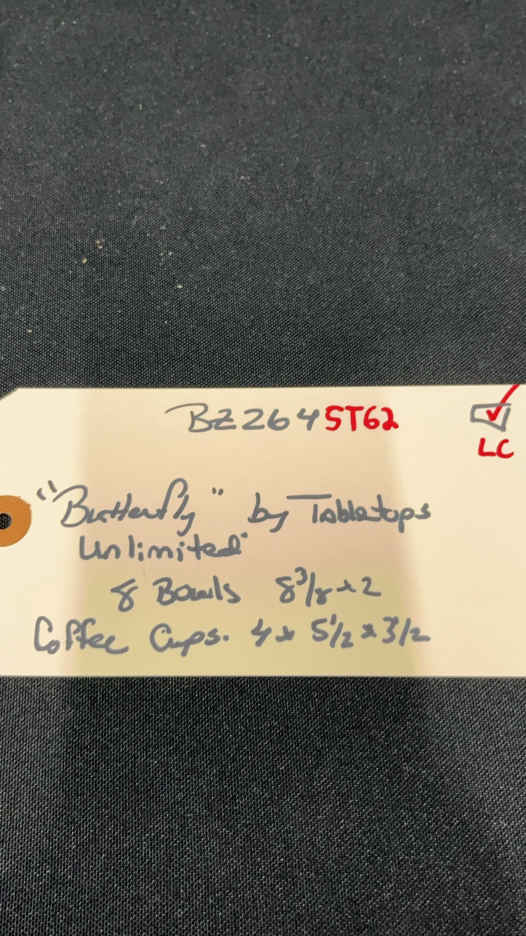 BZ264ST62
LC
"Butterfly" by Tabletops
Unlimited"
8 Bowls 8 3/8 x 2
Coffee Cups. 4 x 5 1/2 x 3 1/2